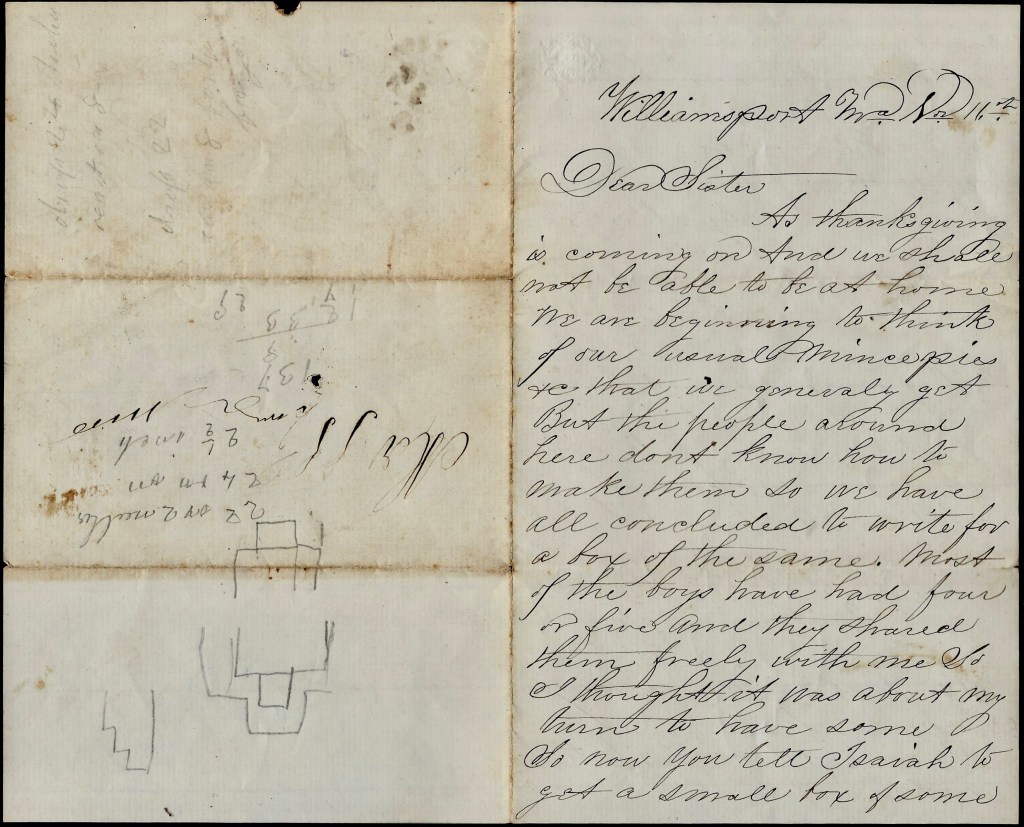 Williamsport Md Nov 11th
Dear Sister
As thanksgiving
is coming on And we shall
not be able to be at home
We are beginning to think
of our usual Mince pies
&c that we generaly get
But the people around
here dont know how to
make them so we have
all concluded to write for
a box of the same. Most
of the boys have had four
or five and they shared
them freely with me So
I thought it was about my
turn to have some
So now you tell Isaiah to
get a small box of some
22
2 4 in on
2 1/2 inch
137
29